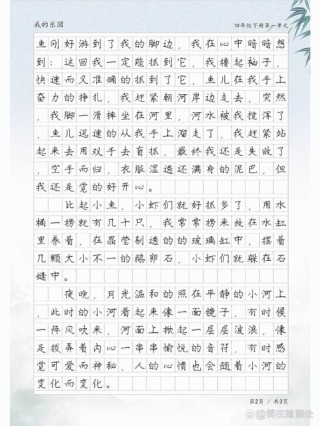 我的乐园 四年级下册第一单元
鱼刚好游到了我的脚边，我在心中暗暗想
到：这回我一定能抓到它，我捧起袖子，
快速而又准确的抓到了它，鱼儿在我手上
奋力的挣扎，我赶紧朝河岸边走去，突然
，我脚一滑摔坐在河里，河水被我搅浑了
，鱼儿迅速的从我手上溜走了，我赶紧站
起来去用双手去盲抓，最终我还是失败了
，空手而归，衣服湿透还满身的泥巴，但
我还是觉的好开心。
比起小鱼，小虾们就好抓多了，用水
桶一捞就有几十只，我常常捞来放在水缸
里养着，在晶莹剔透的的玻璃缸中，摆着
几颗大小不一的鹅卵石，小虾们就躲在石
缝中。
夜晚，月光温和的照在平静的小河上
，此时的小河看起来像一面镜子，有时候
一阵风吹来，河面上掀起一层层波浪，像
是拨弄着内心一串串愉悦的音符，有时感
觉可爱而神秘，人的心情也会随着小河的
变化而变化。
第2页 / 共3页